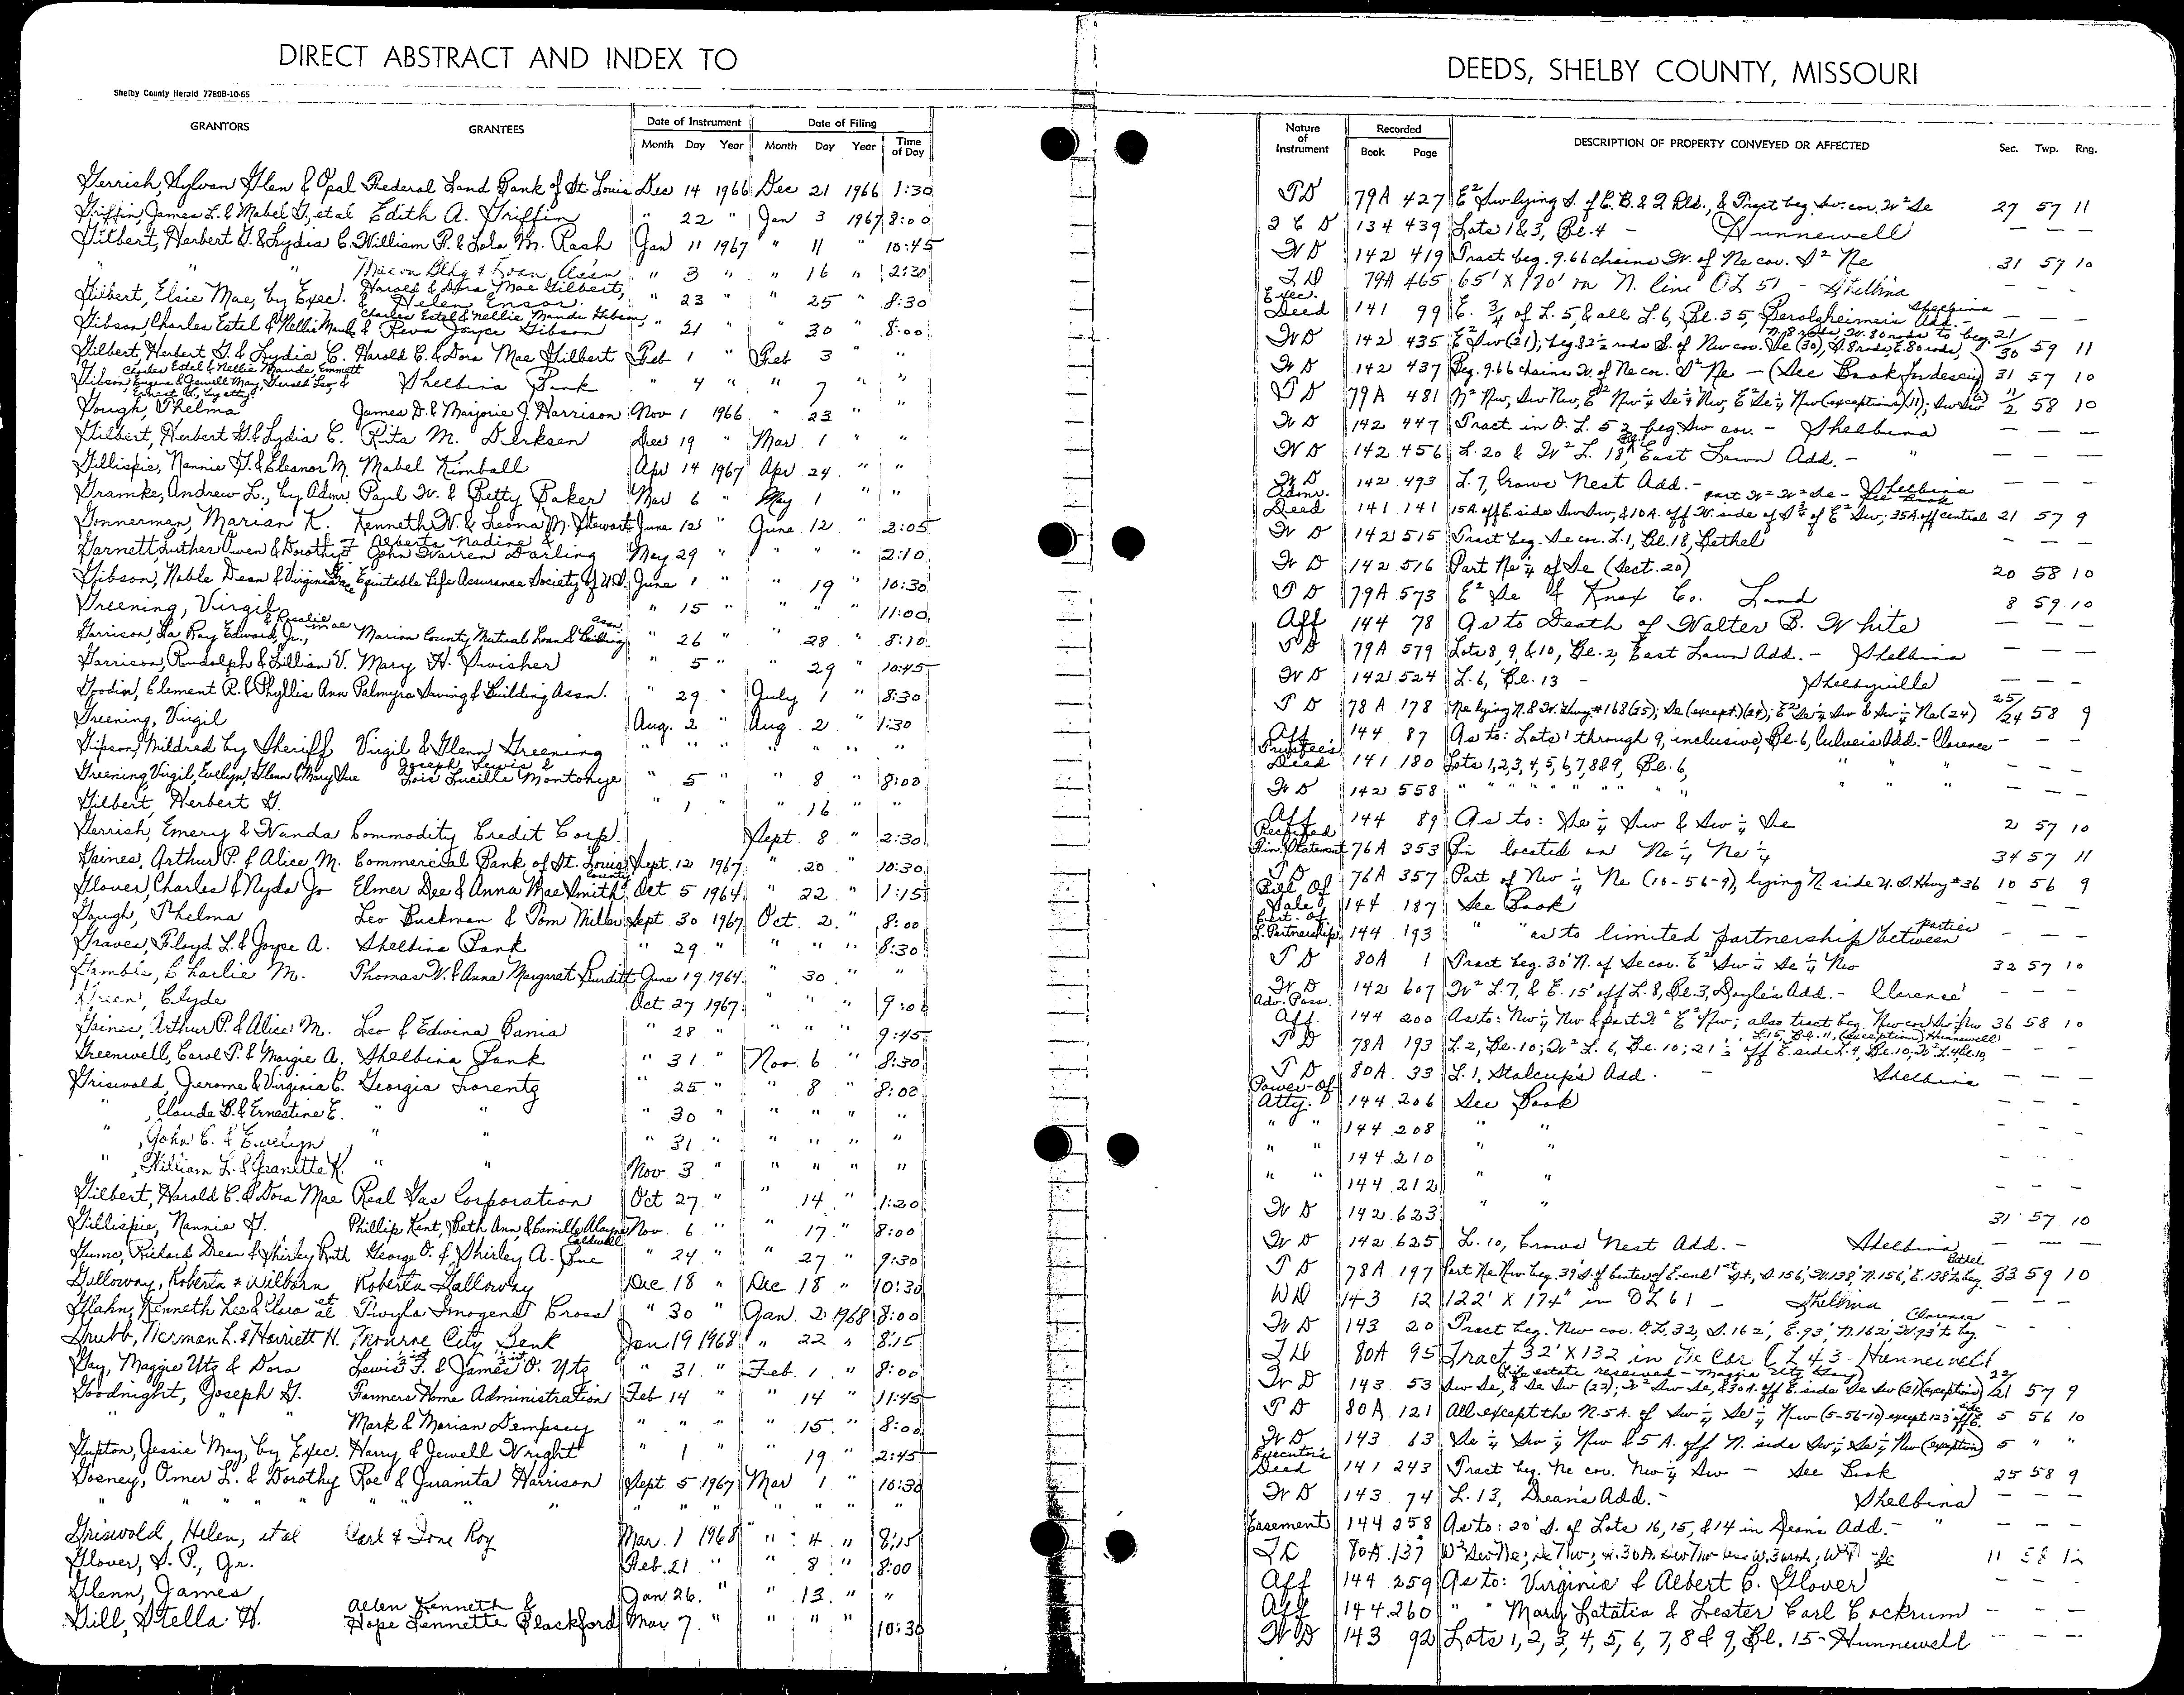 DIRECT ABSTRACT AND INDEX TO
Shelby County Herald 7780B-10-65
GRANTORS GRANTEES Date of Instrument Month Day Year Date of Filing Month Day Year Time of Day
Gerrish, Sylvan Glen & Opal Federal Land Bank of St. Louis Dec 14 1966 Dec 21 1966 1:30
Griffin, James L. & Mabel G., et al Edith A. Griffin " 22 " Jan 3 1967 8:00
Gilbert, Herbert G. & Lydia C. William P. & Lola M. Rash Jan 11 1967 " 11 " 10:45
" " Macon Bldg & Loan Ass'n " 3 " " 16 " 2:30
Gilbert, Elsie Mae, by Exec. Harold & Dora Mae Gilbert, & Helen Ensor. " 23 " " 25 " 8:30
Gibson, Charles Estel & Nellie Maude & Charles Estel & Nellie Maude Gibson, Reva Joyce Gibson " 21 " " 30 " 8:00
Gilbert, Herbert G. & Lydia C. Harold C. & Dora Mae Gilbert Feb 1 " Feb 3 " "
Gibson, Charles Estel & Nellie Maude, Emmett Eugene & Jewell May, Gerald Leo, & Ernest G., by atty Shelbina Bank " 4 " " 7 " "
Gough, Thelma James D. & Marjorie J. Harrison Nov 1 1966 " 23 " "
Gilbert, Herbert G. & Lydia C. Rita M. Derksen Dec 19 " Mar 1 " "
Gillispie, Nannie G. & Eleanor M. Mabel Kimball Apr 14 1967 Apr 24 " "
Gramke, Andrew L., by Admr. Paul W. & Betty Baker Mar 6 " May 1 " "
Gonnerman, Marian K. Kenneth W. & Leona M. Stewart June 12 " June 12 " 2:05
Garnett, Luther Owen & Dorothy F. Alberta Nadine & John Warren Darling May 29 " " " " 2:10
Gibson, Noble Dean & Virginia Equitable Life Assurance Society of U.S. June 1 " " 19 " 10:30
Greening, Virgil " 15 " " " " 11:00
Garrison, La Ray Edward, Jr., & Rosalie Mae Marion County Mutual Loan & Building Assn. " 26 " " 28 " 8:10
Garrison, Rudolph & Lillian V. Mary H. Swisher " 5 " " 29 " 10:45
Goodin, Clement R. & Phyllis Ann Palmyra Saving & Building Assn. " 29 " July 1 " 8:30
Greening, Virgil Aug. 2 " Aug. 2 " 1:30
Gipson, Mildred by Sheriff Virgil & Glenn Greening " " " " " " "
Greening, Virgil, Evelyn, Glenn & Mary Sue Joseph Lewis & Lois Lucille Montonye " 5 " " 8 " 8:00
Gilbert, Herbert G. " 1 " " 16 " "
Gerrish, Emery & Wanda Commodity Credit Corp. Sept. 8 " 2:30
Gaines, Arthur P. & Alice M. Commercial Bank of St. Louis County Sept. 12 1967 " 20 " 10:30
Glover, Charles & Nyda Jo Elmer Dee & Anna Mae Smith Oct 5 1964 " 22 " 1:15
Gough, Thelma Leo Buckman & Tom Miller Sept 30 1967 Oct. 2 " 8:00
Graves, Floyd L. & Joyce A. Shelbina Bank " 29 " " " " 8:30
Gamble, Charlie M. Thomas W. & Anna Margaret Burditt June 19 1964 " 30 " "
Green, Clyde Oct 27 1967 " " " 9:00
Gaines, Arthur P. & Alice M. Leo & Edwina Bania " 28 " " " " 9:45
Greenwell, Carol P. & Margie A. Shelbina Bank " 31 " Nov. 6 " 8:30
Griswold, Jerome & Virginia C. Georgia Lorentz " 25 " " 8 " 8:00
" , Claude B. & Ernestine E. " " " 30 " " " " "
" , John C. & Evelyn " " " 31 " " " " "
" , William L. & Jeanette K. " " Nov 3 " " " " "
Gilbert, Harold C. & Dora Mae Real Gas Corporation Oct 27 " " 14 " 1:20
Gillispie, Nannie G. Phillip Kent, Beth Ann, & Camille Alayne Caldwell Nov 6 " " 17 " 8:00
Gums, Richard Dean & Shirley Ruth George O. & Shirley A. Sue " 24 " " 27 " 9:30
Galloway, Roberta & Wilburn Roberta Galloway Dec 18 " Dec 18 " 10:30
Glahn, Kenneth Lee & Clara et al Twyla Imogene Cross " 30 " Jan. 2 1968 8:00
Grubb, Norman L. & Harriett H. Monroe City Bank Jan 19 1968 " 22 " 8:15
Gay, Maggie Utz & Dora Lewis F. & James O. Utz " 31 " Feb. 1 " 8:00
Goodnight, Joseph G. Farmers Home Administration Feb 14 " " 14 " 11:45
" " " Mark & Marian Dempsey " " " " 15 " 8:00
Gupton, Jessie May, by Exec. Harry & Jewell Wright " 1 " " 19 " 2:45
Gosney, Omer L. & Dorothy Roe & Juanita Harrison Sept. 5 1967 Mar 1 " 10:30
" " " " " " " " " " " " "
Griswold, Helen, et al Carl & Ione Roy Mar. 1 1968 " 4 " 8:15
Glover, S. P., Jr. Feb. 21 " " 8 " 8:00
Glenn, James Jan. 26 " " 13 " "
Gill, Stella H. Allen Kenneth & Hope Lennette Blackford Mar 7 " " " " 10:30
DEEDS, SHELBY COUNTY, MISSOURI
Nature of Instrument Recorded Book Page DESCRIPTION OF PROPERTY CONVEYED OR AFFECTED Sec. Twp. Rng.
T D 79A 427 E² Sw lying S. of C. B. & Q Rld., & Tract beg. Sw. cor. W² Se 27 57 11
Q C D 134 439 Lots 1 & 3, Bl. 4 - Hunnewell — — —
W D 142 419 Tract beg. 9.66 chains W. of Ne cor. S² Ne 31 57 10
T D 79A 465 65' X 180' on N. line OL 51 - Shelbina - - -
Exec. Deed 141 99 E. 3/4 of L. 5, & all L. 6, Bl. 35, Berolzheimer's Add. - Shelbina — — —
W D 142 435 E² Sw (21); beg 82½ rods S. of Nw cor. Se (30), S. 8 rods, E. 80 rods, N. 8 rods, W. 80 rods to beg. 21/30 59 11
W D 142 437 Beg. 9.66 chains W. of Ne cor. S² Ne — (See Book for descrip) 31 57 10
T D 79A 481 N² Nw, Sw Nw, E² Nw ¼ Se ¼ Nw, E² Se ¼ Nw (exceptions) (11); Sw Sw (2) 11/2 58 10
W D 142 447 Tract in O. L. 52 beg. Sw cor. - Shelbina — — —
W D 142 456 L. 20 & W² L. 18, East Lawn Add. - " — — —
W D 142 493 L. 7, Crows Nest Add. - Shelbina — — —
Admr. Deed 141 141 15A. off E. side Sw Sw, & 10A. off W. side of S ¾ of E² Sw; 35A. off central part W² W² Se - See Book 21 57 9
W D 142 515 Tract beg. Se cor. L. 1, Bl. 18, Bethel — — —
W D 142 516 Part Ne ¼ of Se (Sect. 20) 20 58 10
T D 79A 573 E² Se & Knox Co. Land 8 59 10
Aff 144 78 As to Death of Walter B. White — — —
T D 79A 579 Lots 8, 9, & 10, Bl. 2, East Lawn Add. - Shelbina — — —
W D 142 524 L. 6, Bl. 13 - Shelbyville — — —
T D 78A 178 Ne lying N. & W. Hwy #168 (25); Se (except.) (24); E² Se ¼ Sw & Sw ¼ Ne (24) 25/24 58 9
Aff 144 87 As to: Lots 1 through 9, inclusive, Bl. 6, Culver's Add. - Clarence — — —
Trustee's Deed 141 180 Lots 1,2,3,4,5,6,7,8&9, Bl. 6, " " " — — —
W D 142 558 " " " " " " " " " " — — —
Aff 144 89 As to: Se ¼ Sw & Sw ¼ Se 2 57 10
Rectified Fin. Statement 76A 353 Bin located on Ne ¼ Ne ¼ 34 57 11
T D 76A 357 Part of Nw ¼ Ne (10-56-9), lying N. side U. S. Hwy #36 10 56 9
Bill Of Sale 144 187 See Book — — —
Cert. of L. Partnership 144 193 " " as to limited partnership between parties — — —
T D 80A 1 Tract beg. 30' N. of Se cor. E² Sw ¼ Se ¼ Nw 32 57 10
W D 142 607 W² L. 7, & E. 15' off L. 8, Bl. 3, Doyle's Add. - Clarence — — —
Adv. Poss. Aff. 144 200 As to: Nw ¼ Nw & part W² E² Nw; also tract beg. Nw cor Sw Nw 36 58 10
T D 78A 193 L. 2, Bl. 10; W² L. 6, Bl. 10; 21½' off E. side L. 4, Bl. 10; W² L. 4, Bl. 10, L. 15, Bl. 11, (exception) Hunnewell - - -
T D 80A 33 L. 1, Stalcup's Add. - Shelbina — — —
Power-Of Atty. 144 206 See Book - - -
" " 144 208 " " - - -
" " 144 210 " " - - -
" " 144 212 " " - - -
W D 142 623 " " 31 57 10
W D 142 625 L. 10, Crows Nest Add. - Shelbina — — —
T D 78A 197 Part Ne Nw beg. 39' S. of center of E. end 1st St., S. 156', W. 138', N. 156', E. 138' to beg. Bethel 33 59 10
WD 143 12 122' X 174' in OL 61 - Shelbina — — —
W D 143 20 Tract beg. Nw cor. O.L. 32, S. 162', E. 93', N. 162', W. 93' to beg. Clarence - - -
T D 80A 95 Tract 32' X 132 in Ne Cor OL 43 Hunnewell
W D 143 53 (Life estate reserved - Maggie Utz Gay) Sw Se, & Se Sw (22); W² Sw Se, & 30A. off E. side Se Sw (21) (exceptions) 22/21 57 9
T D 80A 121 All except the N. 5A. of Sw ¼ Se ¼ Nw (5-56-10) except 123' off E. side 5 56 10
W D 143 63 Se ¼ Sw ¼ Nw & 5 A. off N. side Sw ¼ Se ¼ Nw (exception) 5 " "
Executor's Deed 141 243 Tract beg. Ne cor. Nw ¼ Sw — See Book 25 58 9
W D 143 74 L. 13, Dean's Add. - Shelbina — — —
Easement 144 258 As to: 20' S. of Lots 16, 15, & 14 in Dean's Add. - " — — —
T D 80A 137 W² Sw Ne; Se Nw; 11 58 12
Aff 144 259 As to: Virginia & Albert C. Glover - - -
Aff 144 260 " " Mary Latatia & Lester Carl Cockrum - - -
W D 143 92 Lots 1, 2, 3, 4, 5, 6, 7, 8 & 9, Bl. 15 - Hunnewell — — —